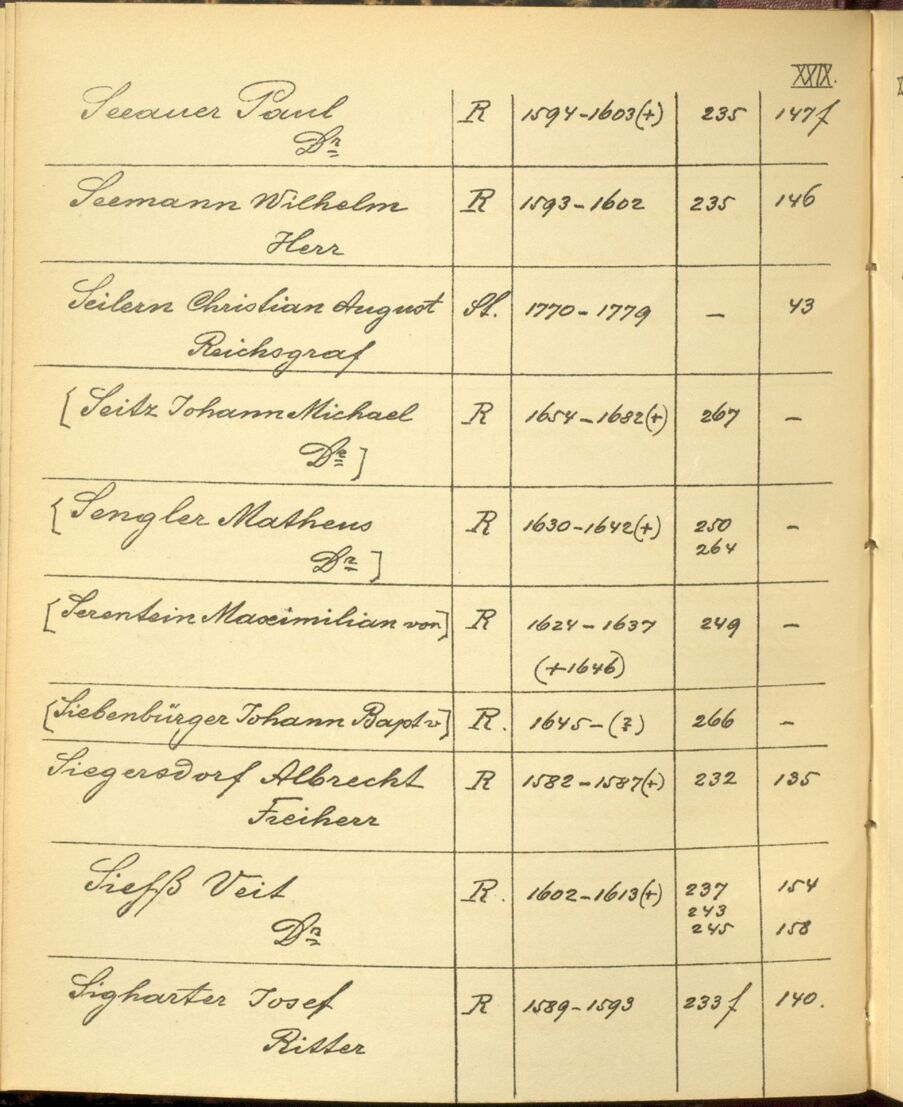 XXIX.
Seeauer Paul R 1594-1603(+) 235 147f
Dr
Seemann Wilhelm R 1593-1602 235 146
Herr
Seilern Christian August St. 1770-1779 — 43
Reichsgraf
[Seitz Johann Michael R 1654-1682(+) 267 —
Dr]
[Sengler Matheus R 1630-1642(+) 250 —
264
Dr]
[Serentein Maximilian von] R 1624-1637 249 —
(+1646)
[Siebenbürger Johann Bapt v] R. 1645-(?) 266 —
Siegersdorf Albrecht R 1582-1587(+) 232 135
Freiherr
Siefß Veit R. 1602-1613(+) 237 154
243
Dr 245 158
Sigharter Josef R 1589-1593 233f 140.
Ritter